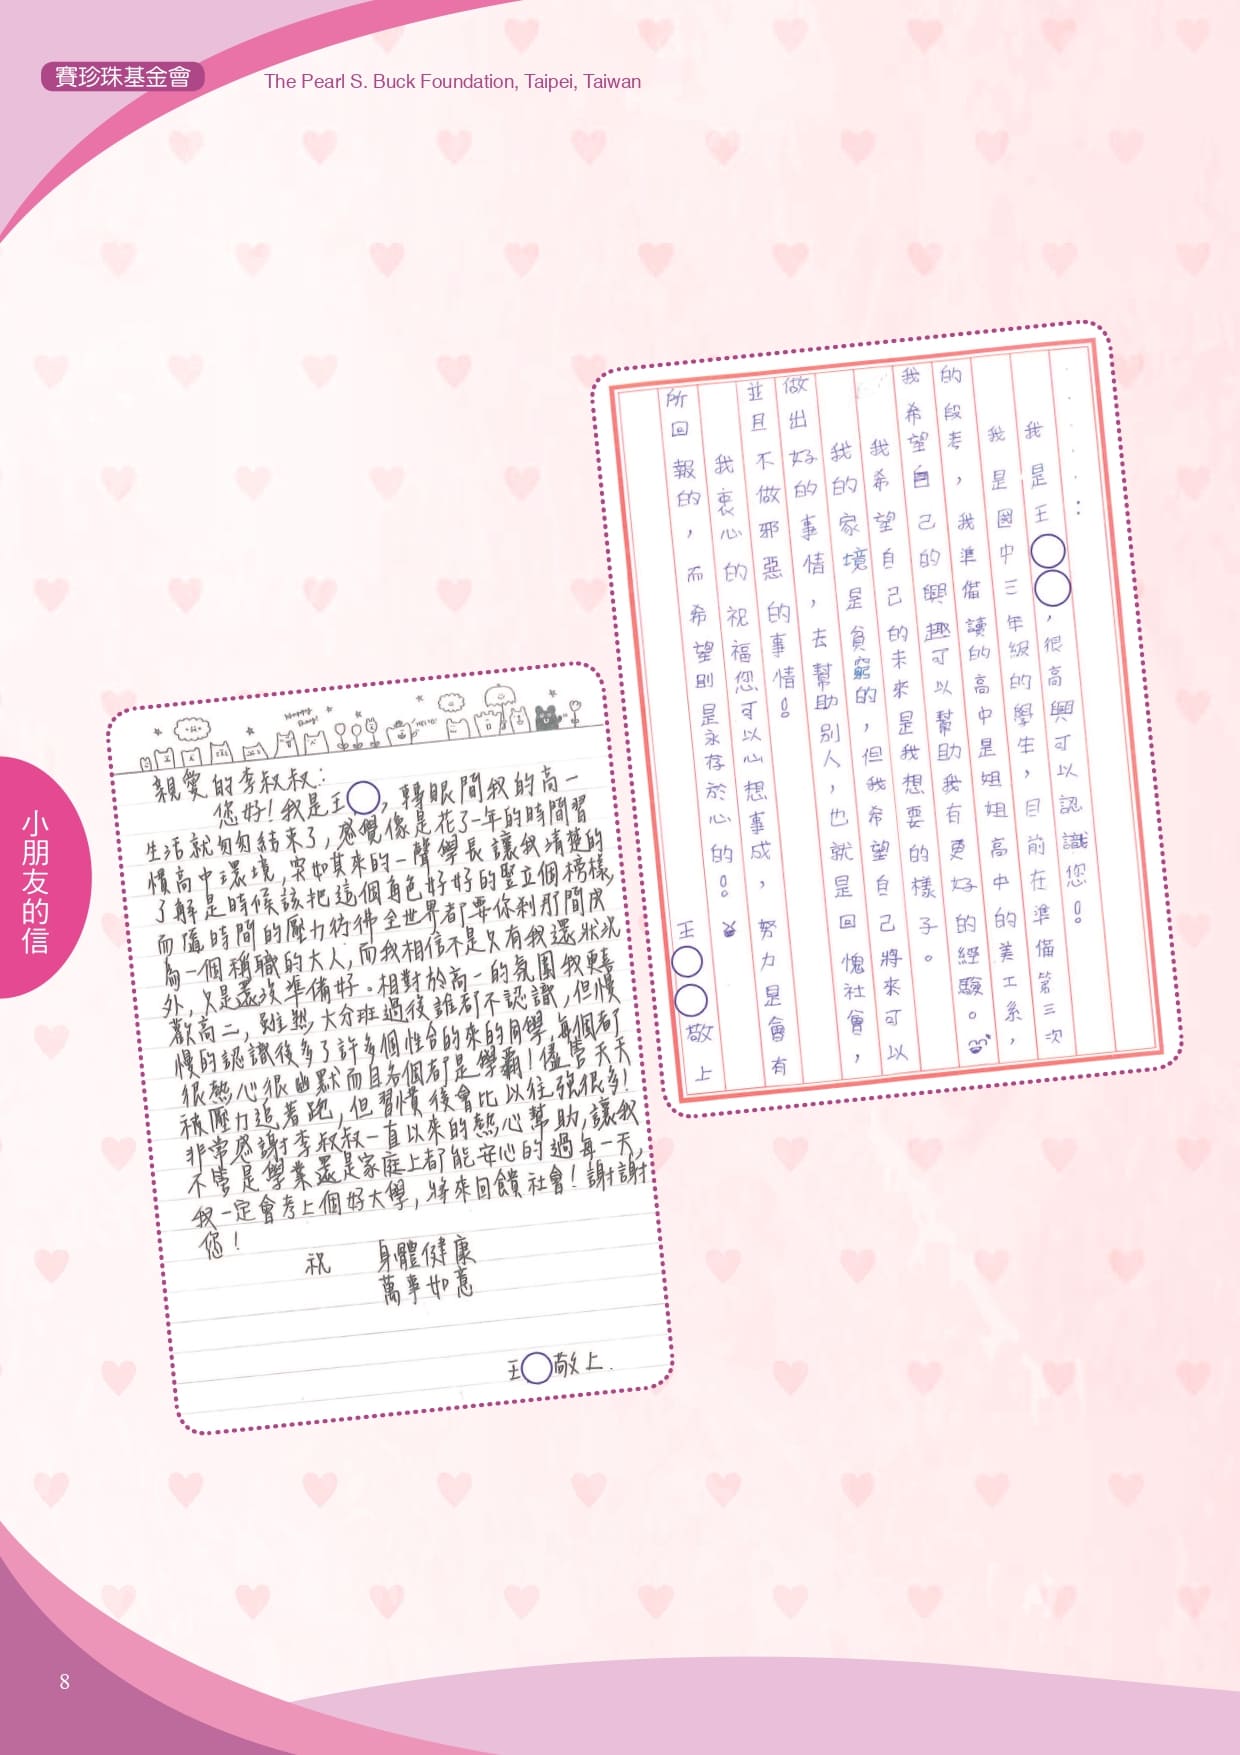 賽珍珠基金會
The Pearl S. Buck Foundation, Taipei, Taiwan
小朋友的信
......：
我是王○○，很高興可以認識您！
我是國中三年級的學生，目前在準備第三次
的段考，我準備讀的高中是姐姐高中的美工系，
我希望自己的興趣可以幫助我有更好的經驗。
我希望自己的未來是我想要的樣子。
我的家境是貧窮的，但我希望自己將來可以
做出好的事情，去幫助別人，也就是回愧社會，
並且不做邪惡的事情！
我衷心的祝福您可以心想事成，努力是會有
所回報的，而希望則是永存於心的！
王○○敬上
親愛的李叔叔：
您好！我是王○，轉眼間我的高一
生活就匆匆結束了，感覺像是花了一年的時間習
慣高中環境，突如其來的一聲學長讓我清楚的
了解是時候該把這個角色好好的豎立個榜樣，
而隨時間的壓力彷彿全世界都要你剎那間成
為一個稱職的大人，而我相信不是只有我還狀況
外，只是還沒準備好。相對於高一的氛圍我更喜
歡高二，雖然大分班過後誰都不認識，但慢
慢的認識後多了許多個性合的來的同學，每個都
很熱心很幽默而且各個都是學霸！儘管天天
被壓力追著跑，但習慣後會比以往強很多！
非常感謝李叔叔一直以來的熱心幫助，讓我
不管是學業還是家庭上都能安心的過每一天，
我一定會考上個好大學，將來回饋社會！謝謝
您！
祝 身體健康
萬事如意
王○敬上.
8